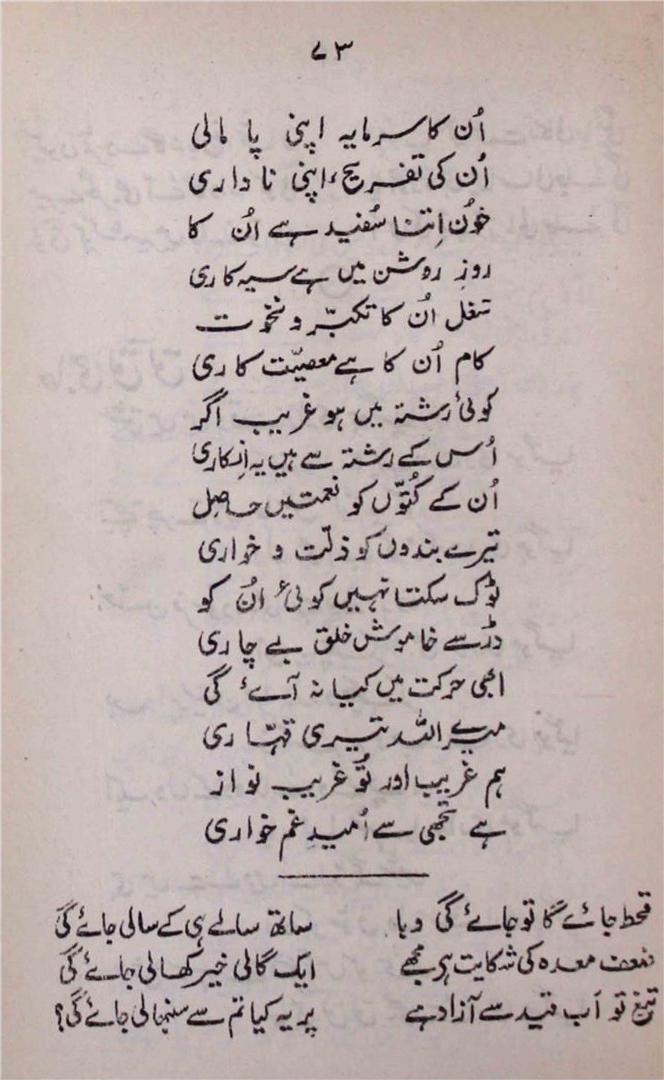 ۷۳
اُن کا سرمایہ اپنی پا مالی
اُن کی تفریح، اپنی ناداری
خوُن اِتنا سُفید ہے اُن کا
روزِ روشن میں ہے سیہ کاری
شغل اُن کا تکبّر و نخوت
کام اُن کا ہے معصیّت کاری
کوئی رشتہ میں ہو غریب اگر
اُس کے رشتہ سے ہیں یہ اِنکاری
اُن کے کُتّوں کو نعمتیں حاصل
تیرے بندوں کو ذلّت و خواری
ٹوک سکتا نہیں کوئی اُن کو
ڈر سے خاموش خلق بے چاری
ابھی حرکت میں کیا نہ آئے گی
میرے اللہ تیری قہّاری
ہم غریب اور توُ غریب نواز
ہے تجھی سے اُمیدِ غم خواری
قحط جائے گا تو جائے گی وبا ساتھ سالے ہی کے سالی جائے گی
ضعف معدہ کی شکایت ہے مجھے ایک گالی خیر کھا لی جائے گی
تیغ تو اَب قید سے آزاد ہے پر یہ کیا تم سے سنبھالی جائے گی؟